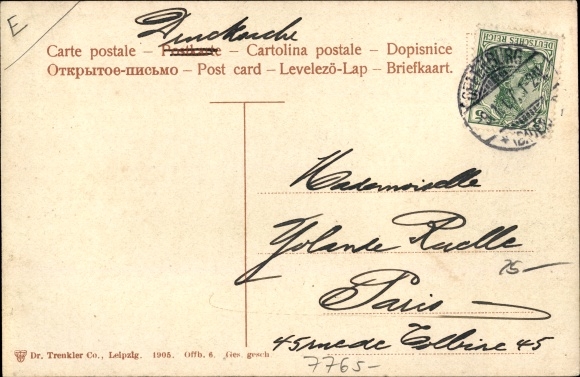 E
Drucksache
Carte postale – Postkarte – Cartolina postale – Dopisnice
Открытое-письмо – Post card – Levelező-Lap – Briefkaart.
DEUTSCHES REICH
5
Mademoiselle
Yolande Ruelle
75 –
Paris
45 rue de 45
7765 –
Dr. Trenkler Co., Leipzig. 1905. Offb. 6. Ges. gesch